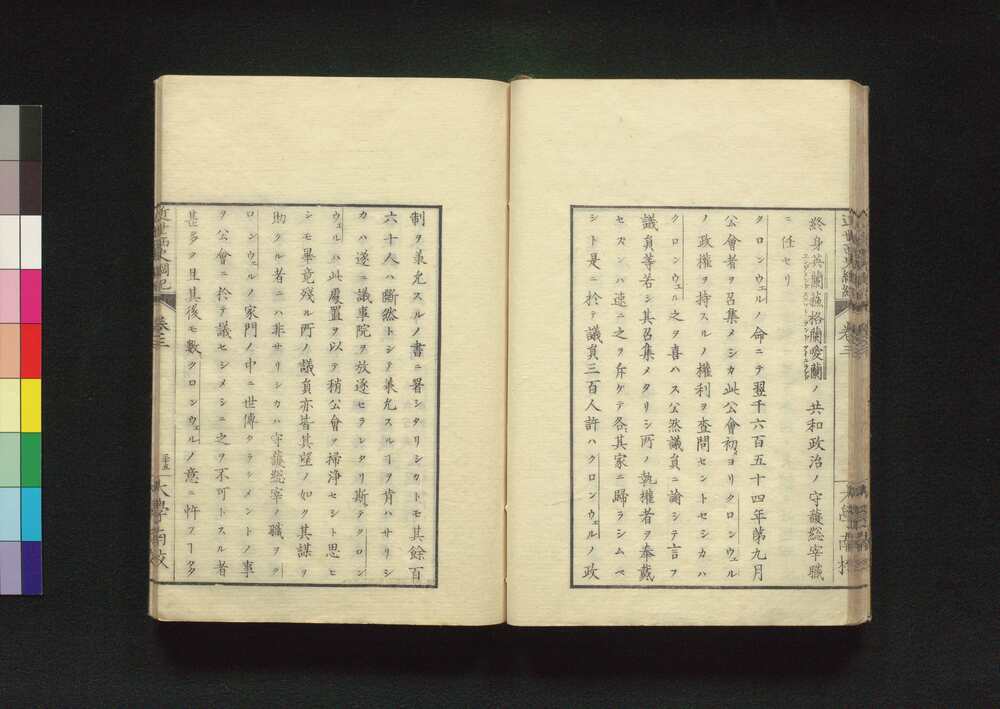 終身英蘭蘇格蘭愛蘭ノ共和政治ノ守護総宰職
ニ任セリ
クロンウェルノ命ニテ翌千六百五十四年第九月
公會者ヲ召集メシカ此公會初ヨリクロンウェル
ノ政權ヲ持スルノ權利ヲ査問セントセシカハ
クロンウェル之ヲ喜ハス公然議員ニ諭シテ言フ
議員等若シ其召集メタリシ所ノ執權者ヲ奉戴
セスンハ速ニ之ヲ斥ケテ各其家ニ歸ラシムベ
シト是ニ於テ議員三百人許ハクロンウェルノ政
近世西史綱紀
卷三
大學南校
制ヲ兼允スルノ書ニ署シタリシカトモ其餘百
六十人ハ斷然トシテ兼允スルヿヲ肯ハサリシ
カハ遂ニ議事院ヲ放逐セラレタリ斯テクロン
ウェルハ此處置ヲ以テ稍公會ヲ掃淨セシト思ヒ
シモ畢竟殘ル所ノ議員亦皆其望ノ如ク其謀ヲ
助クル者ニハ非サリシカハ守護総宰ノ職ヲク
ロンウェルノ家門ノ中ニ世傳タラシメントノ事
ヲ公會ニ於テ議セシメシニ之ヲ不可トスル者
甚多ク且其後モ數クロンウェルノ意ニ忤フヿ多ク
近世西史綱紀
卷三
大學南校